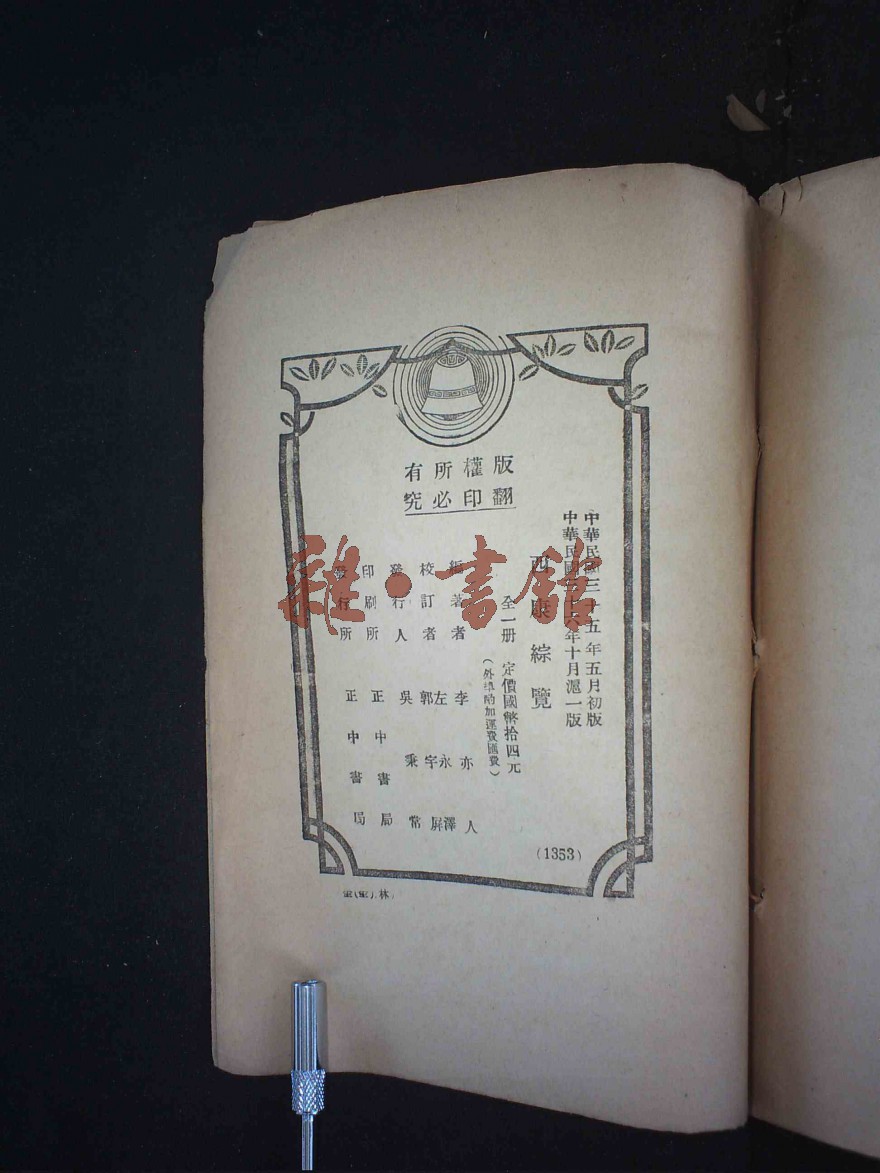 版權所有
翻印必究
中華民國三十五年五月初版
中華民國三十六年十月滬一版
西康綜覽
全一册 定價國幣拾四元
(外埠酌加運費匯費)
編著者 李亦人
校訂者 左永澤 郭宇屏
發行人 吳秉常
印刷所 正中書局
發行所 正中書局
(1353)
林
雜·書館